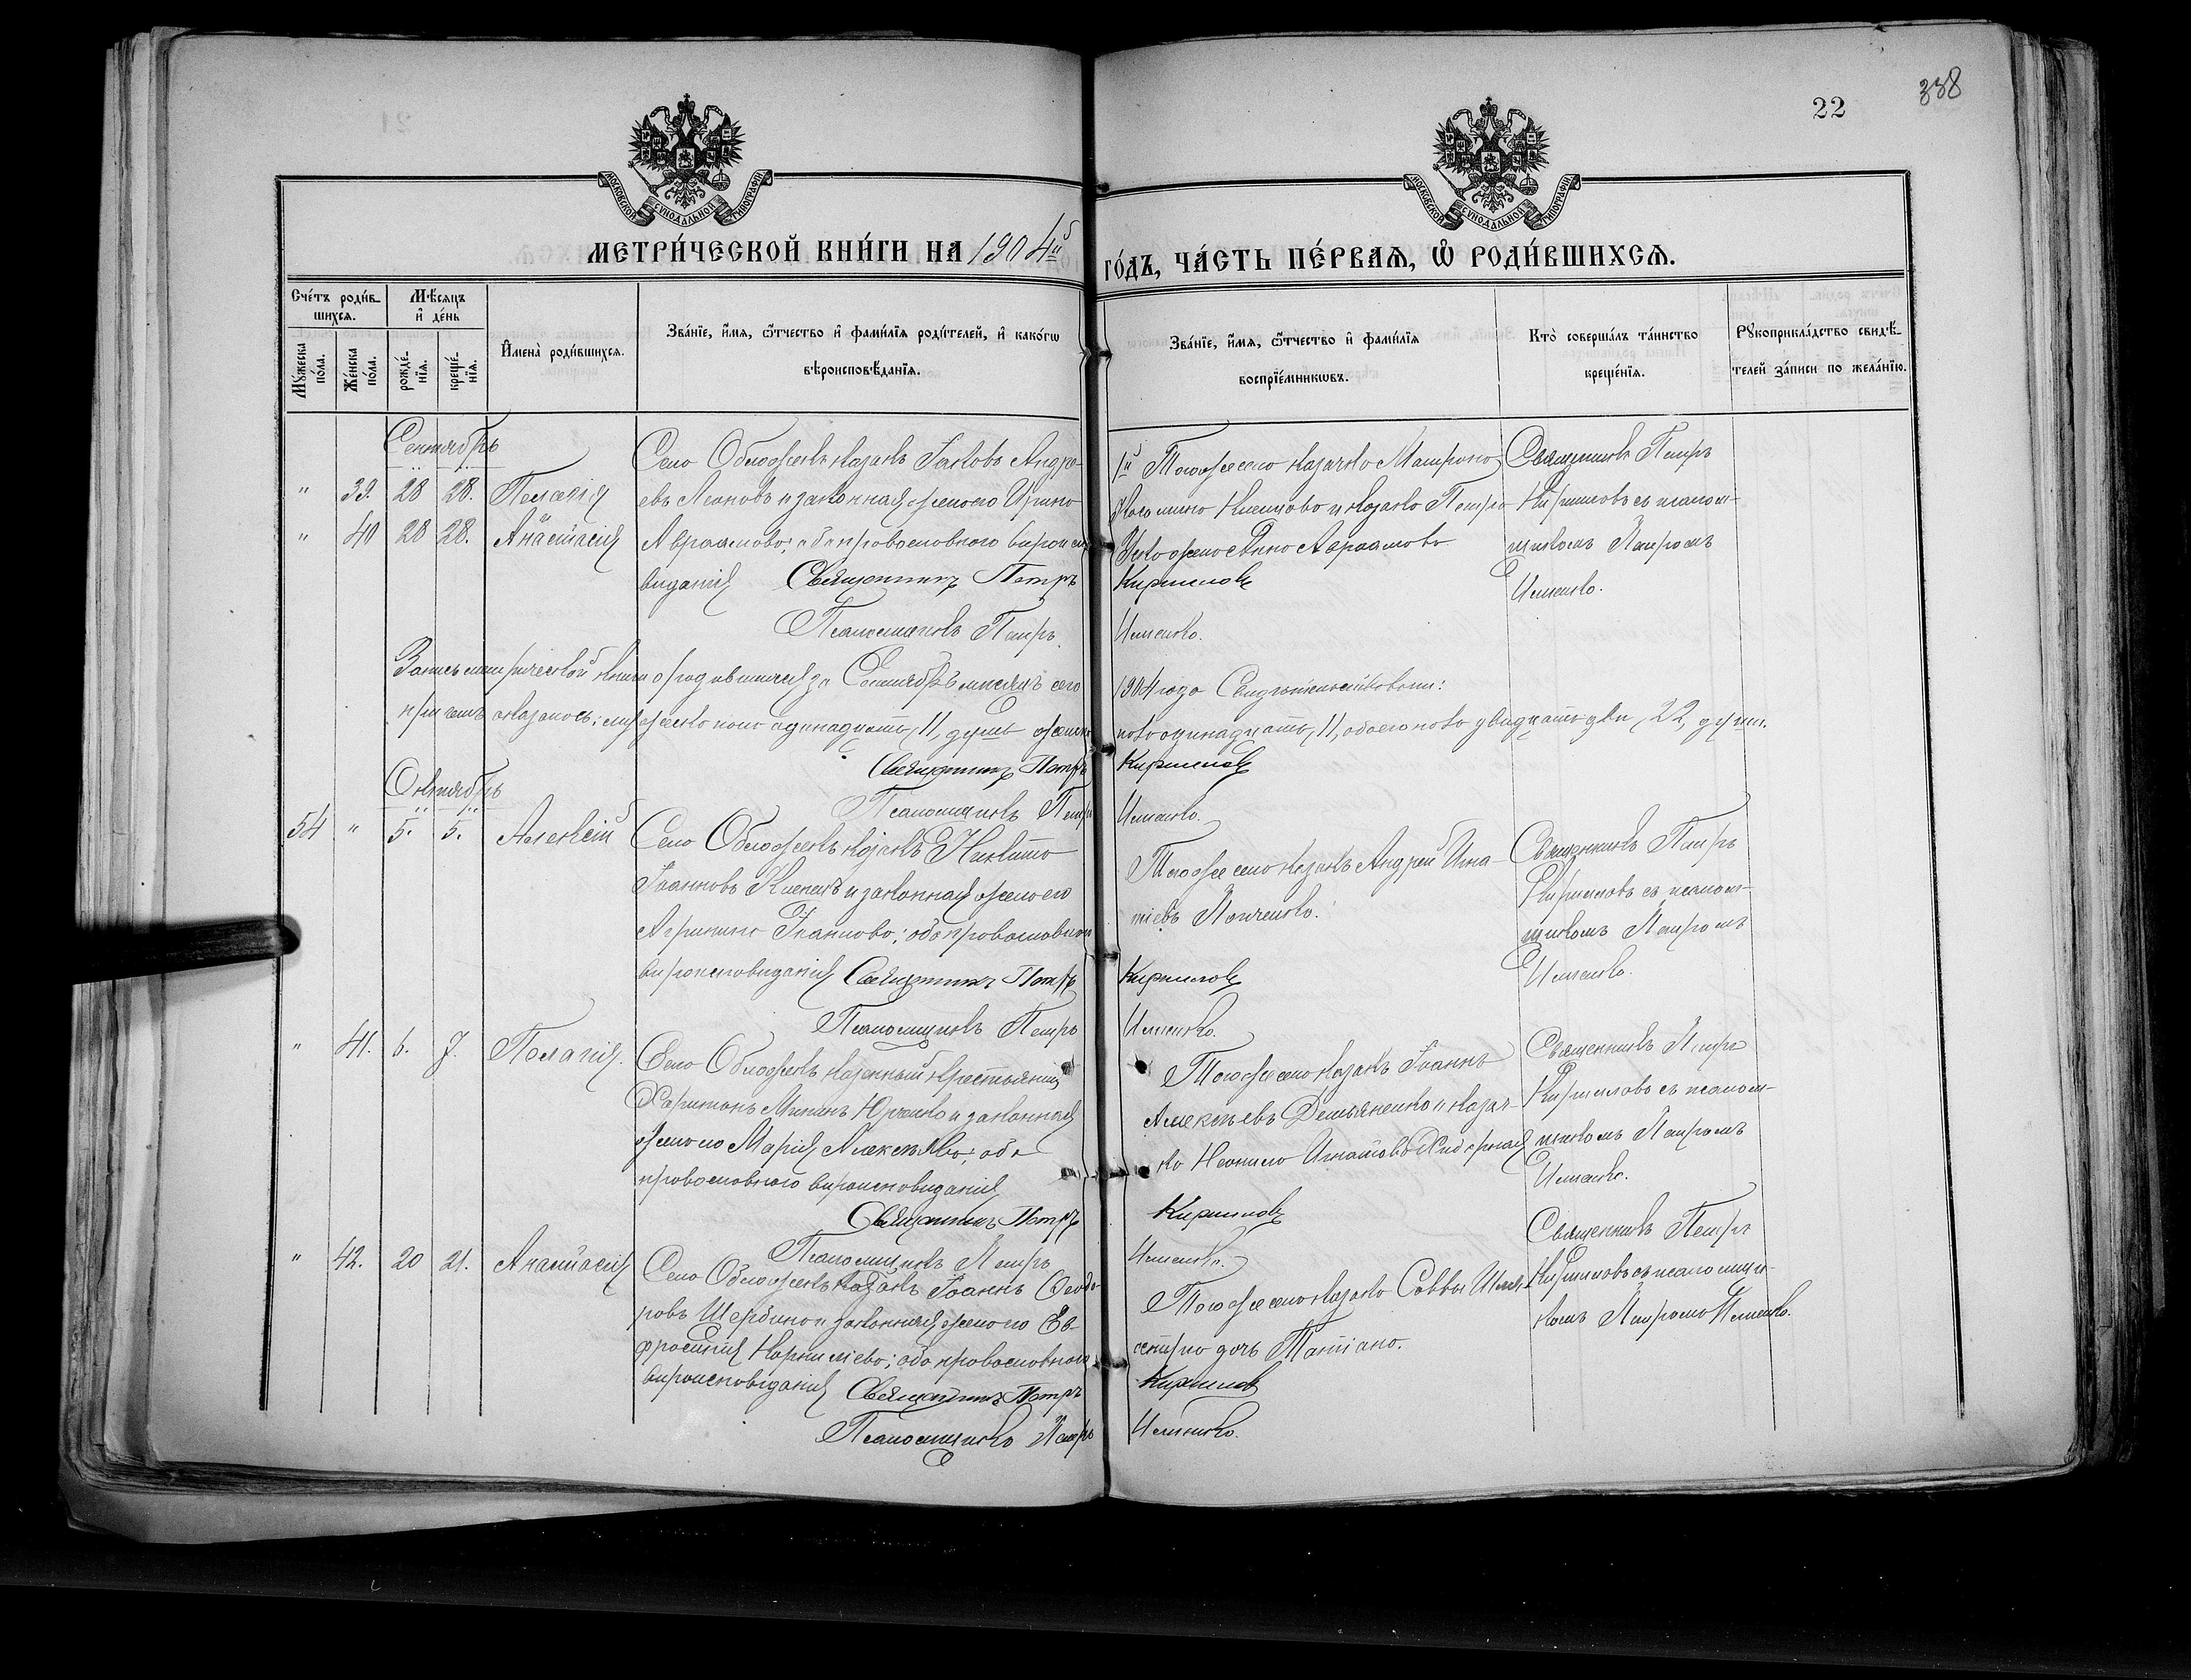 22
338
МОСКОВСКОЙ СУНОДАЛЬНОЙ ТИПОГРАФІИ
МОСКОВСКОЙ СУНОДАЛЬНОЙ ТИПОГРАФІИ
МЕТРИ́ЧЕСКОЙ КНИ́ГИ НА 1904й
ГО́ДЪ, ЧА́СТЬ ПЕ́РВАѦ, Ѡ РОДИ́ВШИХСѦ.
Сче́тъ роди́в-
шихсѧ.
Мѣ́сѧцъ
и҆ де́нь
Мꙋ́жеска по́ла.
Же́нска по́ла.
рожде́-нїѧ.
креще́-нїѧ.
И҆мена̀ роди́вшихсѧ.
Зва́нїе, и҆́мѧ, ѻ҆́тчество и҆ фами́лїѧ роди́телей, и҆ како́гѡ
вѣроисповѣ́данїѧ.
Зва́нїе, и҆́мѧ, ѻ҆́тчество и҆ фами́лїѧ
воспрїе́мникѡвъ.
Кто̀ соверша́лъ та́инство
креще́нїѧ.
Рꙋкоприкла́дство свидѣ́-
телей за́писи по жела́нїю.
Сентябрь
" 39. 28 28. Пелагія
" 40 28 28. Анастасія
Село Обложекъ козакъ Іаковъ Андре-
евъ Леоновъ и законная жена его Ирина
Авраамова; оба православнаго вѣроиспо
вѣданія Священникъ Петръ
Псаломщикъ Петръ
1й Того же села козачка Матрона
и козакъ Петръ
Анна Авраамова
Кириловъ
Ильенко.
Священникъ Петръ
Кириловъ съ псалом-
щикомъ Петромъ
Ильенко.
Запись метрической книги о родившихся за Сентябрь мѣсяцъ сего
1904 года Свидѣтельствовали:
при чемъ оказалось: мужеска пола одинадцать, 11, душъ женска
пола одинадцать, 11, обоего пола двадцать двѣ, 22, души.
Священникъ Петръ
Кириловъ
Псаломщикъ Петръ
Ильенко.
Октябрь
54 " 5. 5. Алексѣй
Село Обложекъ козакъ Никита
Іоанновъ Клепецъ и законная жена его
Агрипина Іванова; оба православнаго
вѣроисповѣданія Священникъ Петръ
Псаломщикъ Петръ
Того же села козакъ Андрей Игна-
тіевъ
Кириловъ
Ильенко.
Священникъ Петръ
Кириловъ съ псалом-
щикомъ Петромъ
Ильенко.
" 41. 6. 7. Пелагія.
Село Обложекъ казенный крестьянинъ
Харитонъ Мининъ Юрченко и законная
жена его Марія Алексѣева; оба
православнаго вѣроисповѣданія
Священникъ Петръ
Псаломщикъ Петръ
Того же села козакъ Іоаннъ
Алексѣевъ Демьяненко и козач-
ка Неонила Игнатова
Кириловъ
Ильенко.
Священникъ Петръ
Кириловъ съ псалом-
щикомъ Петромъ
Ильенко.
" 42. 20 21. Анастасія
Село Обложекъ козакъ Іоаннъ Ѳеодо-
ровъ Щербина и законная жена его Ев-
фросинія Корнилѣева; оба православнаго
вѣроисповѣданія Священникъ Петръ
Псаломщикъ Петръ
Того же села козака Саввы
дочь Татіана.
Кириловъ
Ильенко.
Священникъ Петръ
Кириловъ съ псаломщи-
комъ Петромъ Ильенко.